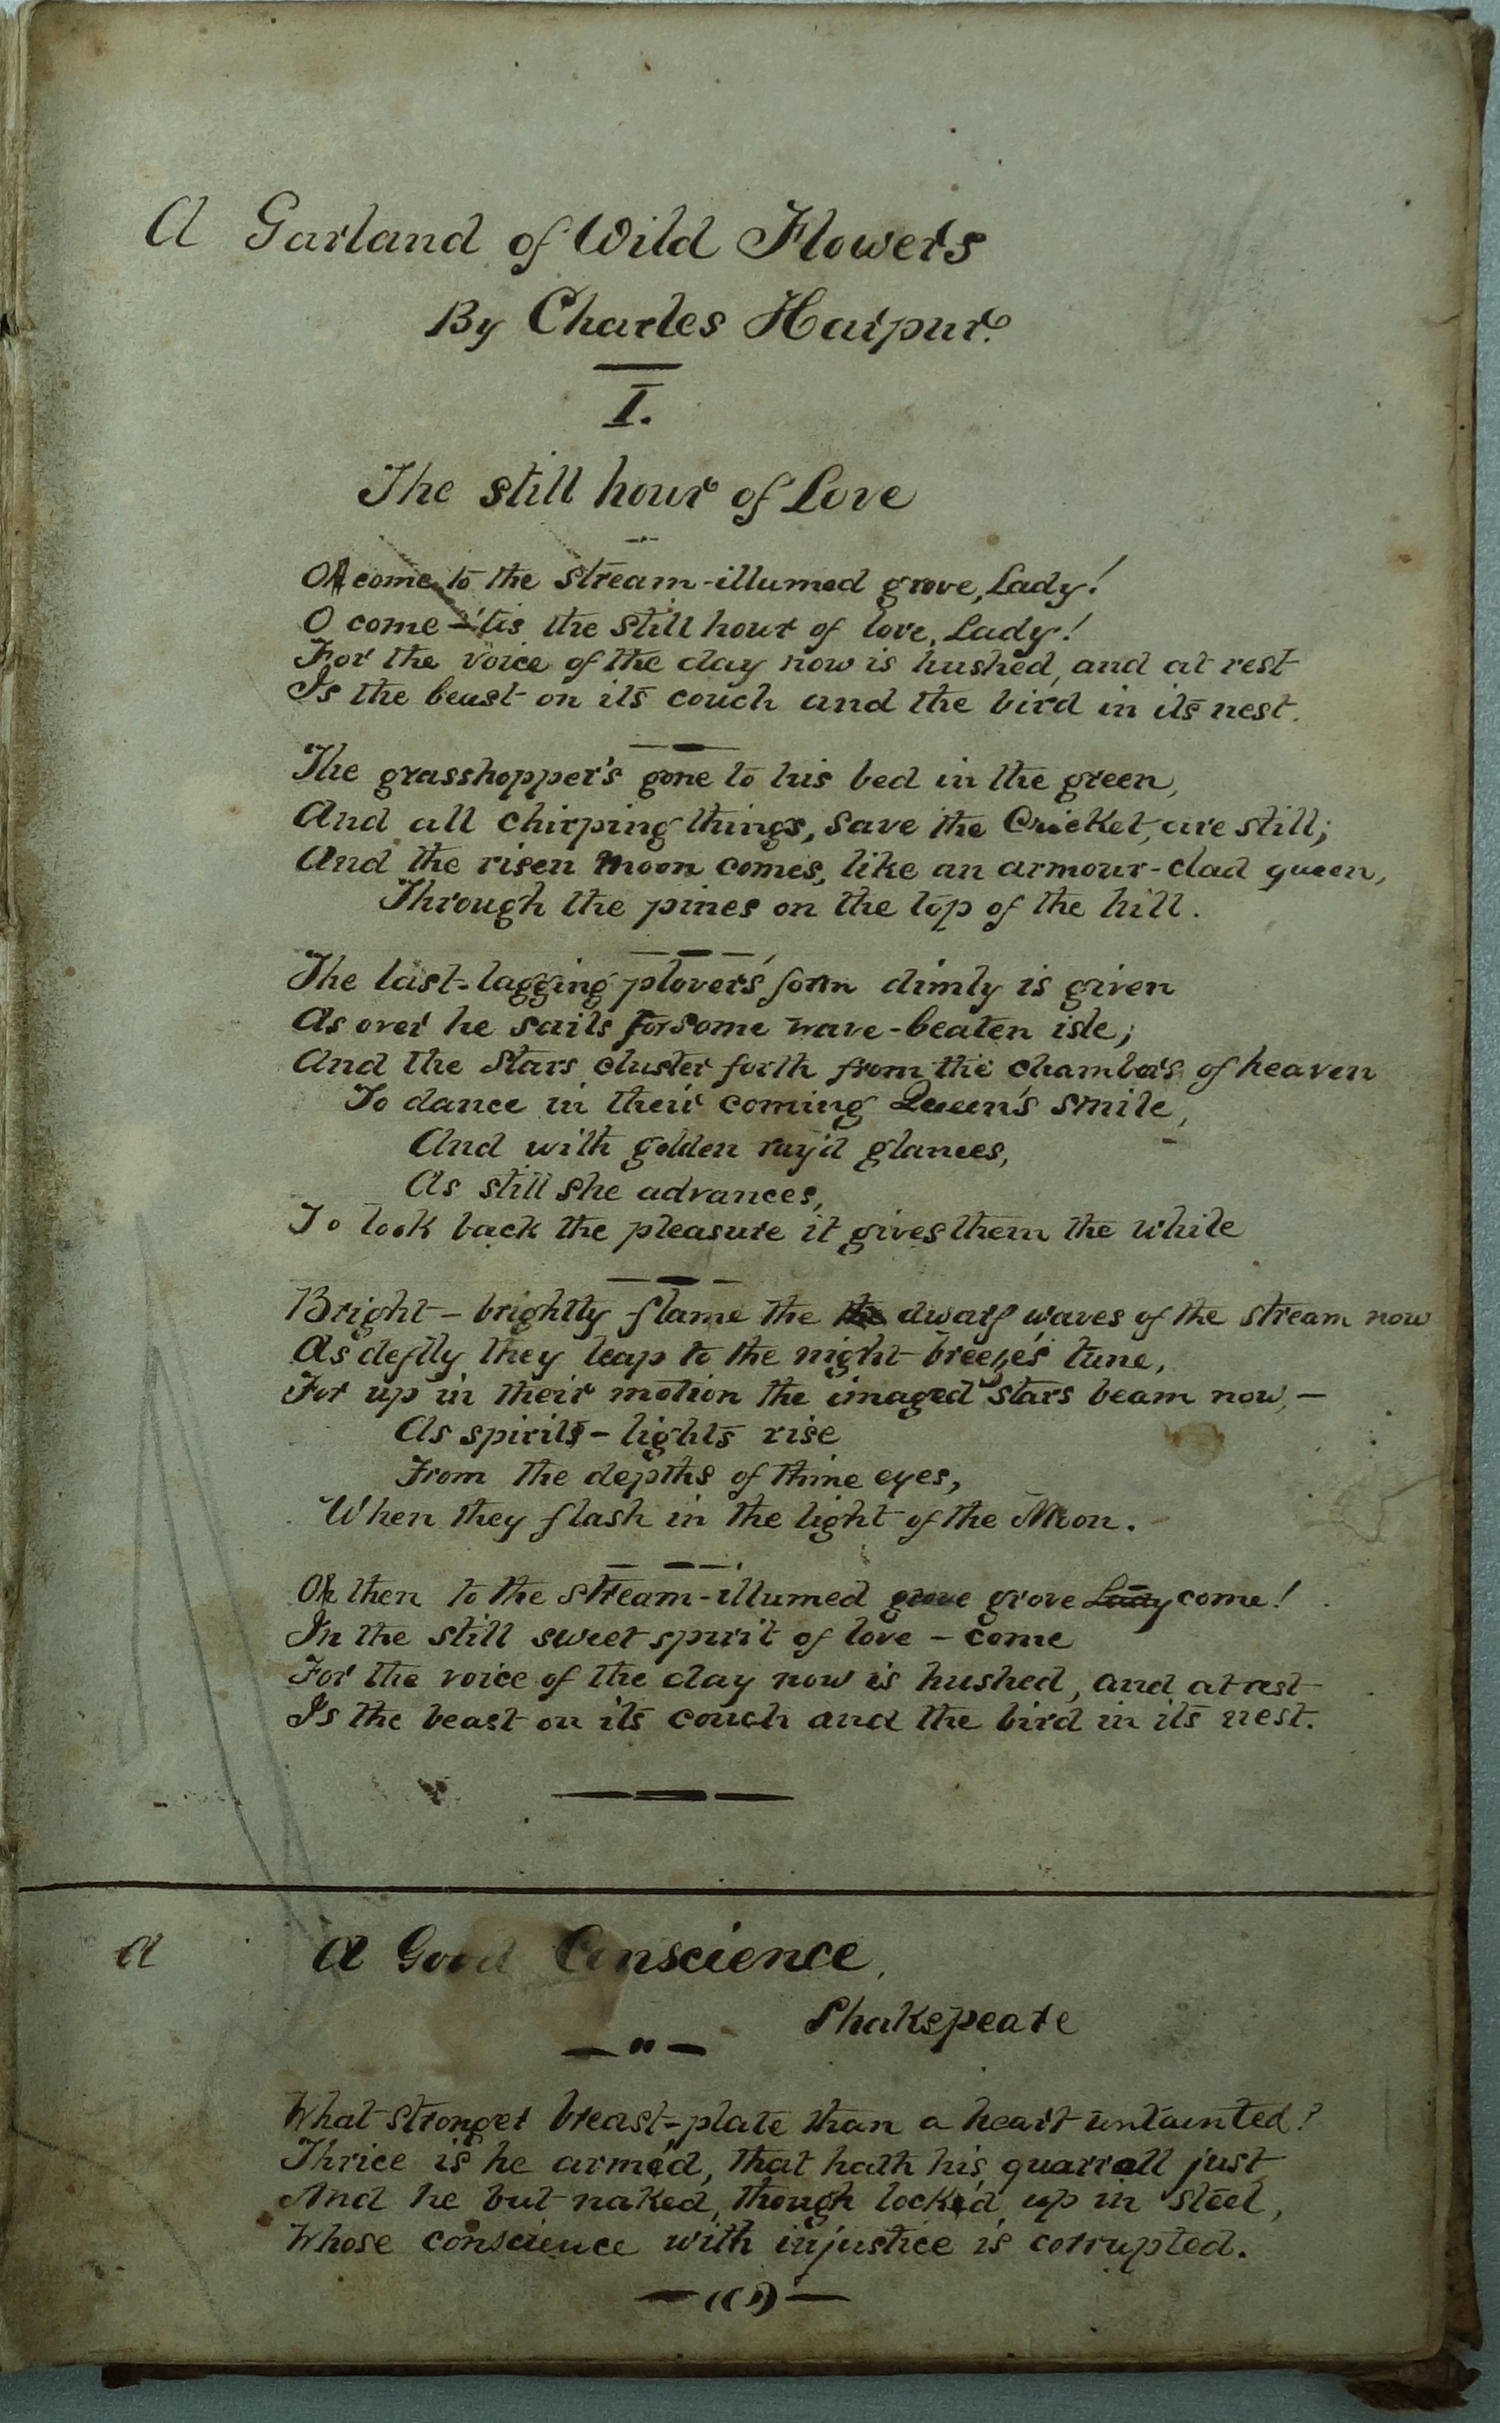 A Garland of Wild Flowers
By Charles Harpur.
I.
The still hour of Love
Oh come to the stream-illumed grove, Lady!
O come – 'tis the still hour of love, Lady!
For the voice of the day now is hushed, and at rest
Is the beast on its couch and the bird in its nest.
The grasshopper's gone to his bed in the green,
And all chirping things, save the Cricket, are still;
And the risen moon comes, like an armour-clad queen,
Through the pines on the top of the hill.
The last-lagging plover's form dimly is given
As over he sails for some wave-beaten isle;
And the Stars cluster forth from the chambers of heaven
To dance in their coming Queen's smile,
And with golden ray'd glances,
As still she advances,
To look back the pleasure it gives them the while
Bright – brightly flame the the dwarf waves of the stream now
As deftly they leap to the night breeze's tune,
For up in their motion the imaged stars beam now, –
As spirits – lights rise
From the depths of thine eyes,
When they flash in the light of the Moon.
Oh then to the stream-illumed grove grove Lady come!
In the still sweet spirit of love – come
For the voice of the day now is hushed, and at rest
Is the beast on its couch and the bird in its nest.
a
A Good Conscience,
Shakspeare
What stronger breast-plate than a heart untainted?
Thrice is he arméd, that hath his quarrell just
And he but naked, though lock'd up in steel,
Whose conscience with injustice is corrupted.